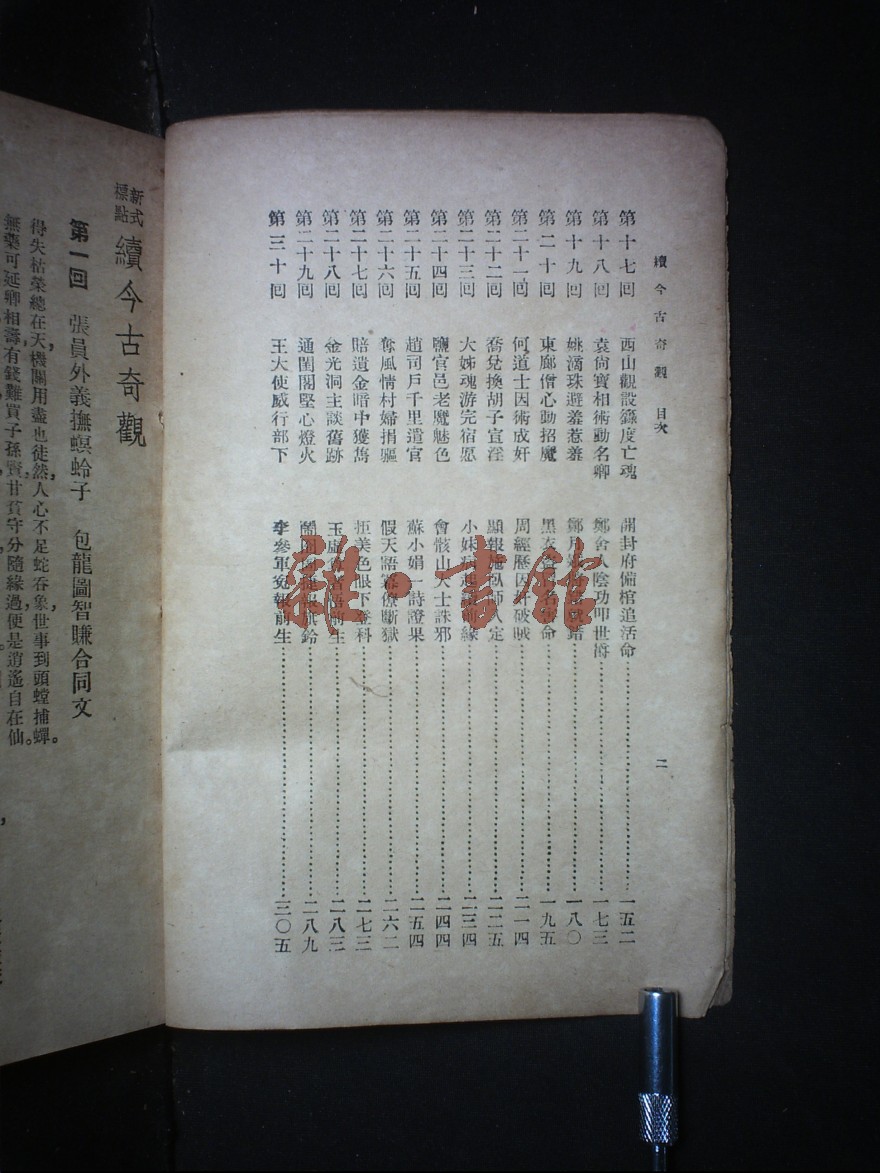 續今古奇觀 目次
二
第十七回 西山觀設籙度亡魂 開封府備棺追活命 一五二
第十八回 袁尙寶相術動名卿 鄭舍人陰功叩世爵 一七三
第十九回 姚滴珠避羞惹羞 鄭月 錯 一八〇
第二十回 東廊僧心動招魔 黑衣 命 一九五
第二十一回 何道士因術成奸 周經歷因奸破賊 二一四
第二十二回 喬兌換胡子宣淫 顯報施臥師入定 二二五
第二十三回 大姊魂游完宿愿 小妹 前緣 二三四
第二十四回 鹽官邑老魔魅色 會骸山大士誅邪 二四四
第二十五回 趙司戶千里遣官 蘇小娟一詩證果 二五四
第二十六回 奪風情村婦捐軀 假天語幕僚斷獄 二六二
第二十七回 賠遺金暗中獲雋 拒美色眼下登科 二七三
第二十八回 金光洞主談舊跡 玉虛 悟前生 二八三
第二十九回 通閨闥堅心燈火 鬧 捷報旂鈴 二八九
第三十回 王大使威行部下 李參軍寃報前生 三〇五
雜·書館
新式標點 續今古奇觀
第一回 張員外義撫螟蛉子 包龍圖智賺合同文
得失枯榮總在天，機關用盡也徒然，人心不足蛇吞象，世事到頭螳捕蟬。
無藥可延卿相壽，有錢難買子孫賢，甘貧守分隨緣過，便是逍遙自在仙。